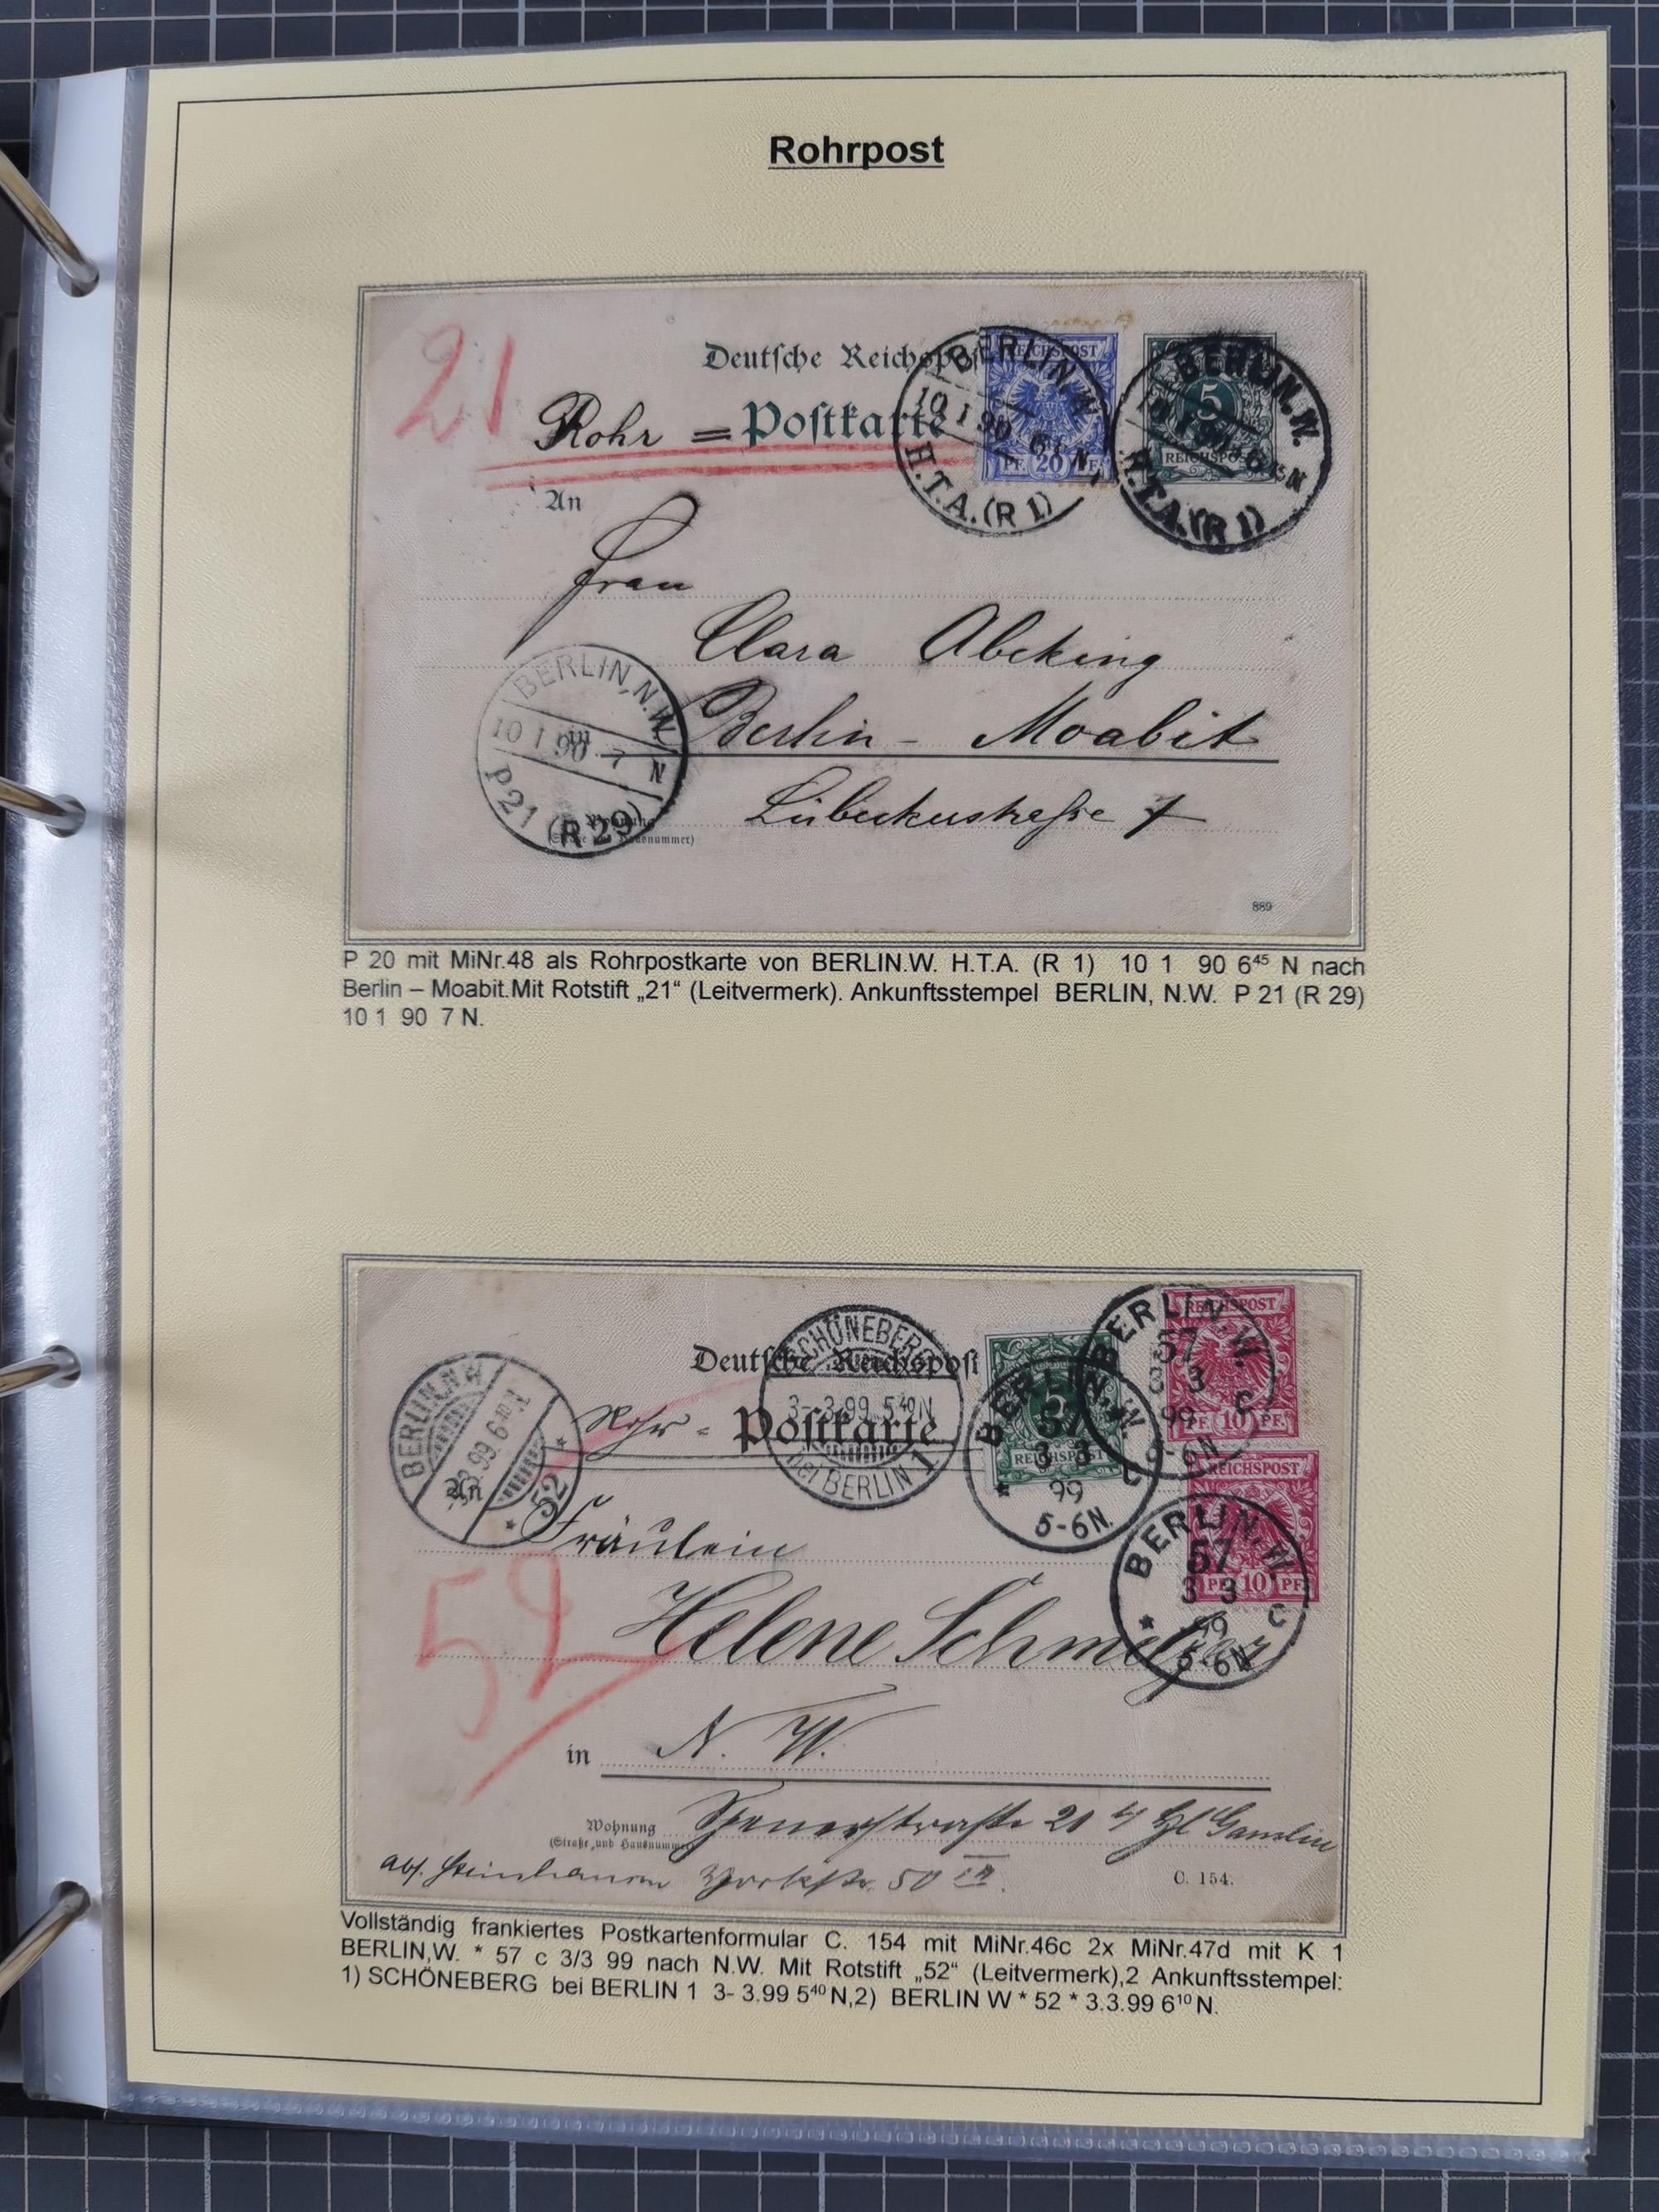 Rohrpost
21
Deutsche Reichspost
Rohr = Postkarte
An
REICHSPOST
PF. 20 PF.
5
REICHSPOST
BERLIN.W.
10 1 90 6 45 N
H.T.A.(R 1)
BERLIN.W.
H.T.A.(R 1)
Frau
Clara Abeking
Berlin - Moabit
Lübeckerstraße 7
BERLIN, N.W.
10 1 90 7 N
P 21 (R 29)
Wohnung
(Straße und Hausnummer)
889
P 20 mit MiNr.48 als Rohrpostkarte von BERLIN.W. H.T.A. (R 1) 10 1 90 6⁴⁵ N nach
Berlin – Moabit.Mit Rotstift „21“ (Leitvermerk). Ankunftsstempel BERLIN, N.W. P 21 (R 29)
10 1 90 7 N.
Deutsche Reichspost
Rohr = Postkarte
SCHÖNEBERG
3-3.99. 5⁴⁰N
bei BERLIN 1
BERLIN N.W
3.3.99. 6¹⁰ N
* 52 *
An
5
REICHSPOST
REICHSPOST
PF. 10 PF.
REICHSPOST
PF. 10 PF.
BERLIN, W.
57
3 3
99
5-6N.
* c
BERLIN, W.
57
3 3
99
5-6N
c
BERLIN, W.
57
3 3
99
5-6N
* c
Fräulein
52
Helene
in N. W.
Wohnung
(Straße und Hausnummer)
Spenerstraße 21
Abs. Steinhausen Yorkstr. 50 III.
C. 154.
Vollständig frankiertes Postkartenformular C. 154 mit MiNr.46c 2x MiNr.47d mit K 1
BERLIN,W. * 57 c 3/3 99 nach N.W. Mit Rotstift „52“ (Leitvermerk),2 Ankunftsstempel:
1) SCHÖNEBERG bei BERLIN 1 3- 3.99 5⁴⁰ N,2) BERLIN W * 52 * 3.3.99 6¹⁰ N.